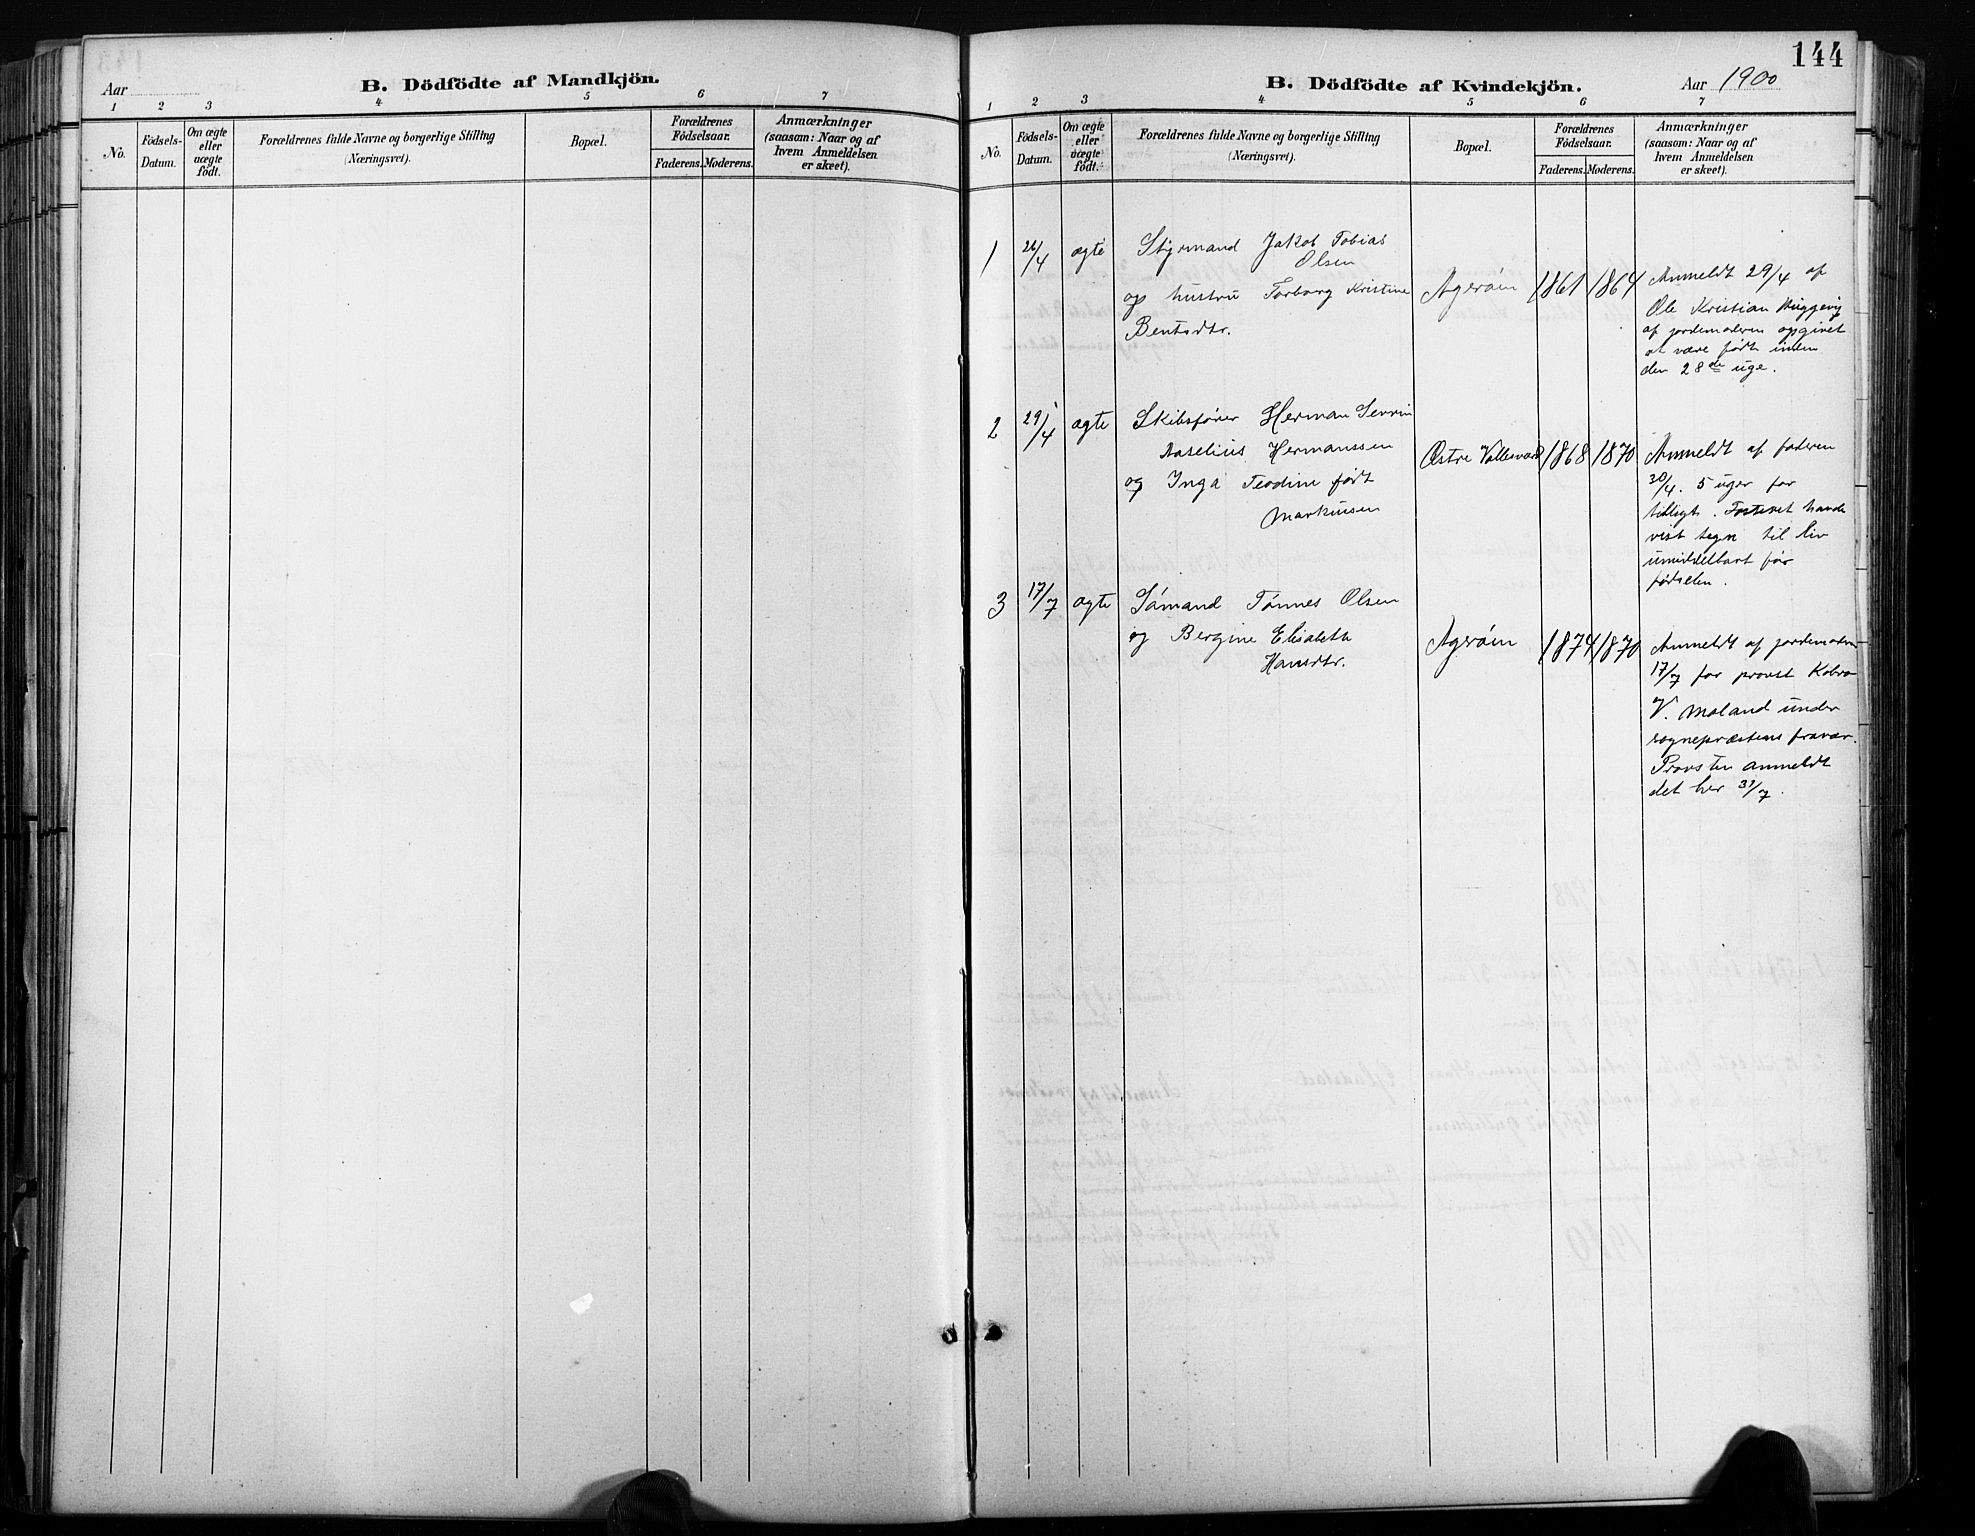 B. Dödfödte af Mandkjön.
Aar
1 2 3 4 5 6 7
No.
Födsels-
Datum.
Om ægte
eller
uægte
födt.
Forældrenes fulde Navne og borgerlige Stilling
(Næringsvei).
Bopæl.
Forældrenes
Födselsaar.
Faderens. Moderens.
Anmærkninger
(saasom: Naar og af
hvem Anmeldelsen
er skeet).
144
B. Dödfödte af Kvindekjön.
Aar 1900
1 2 3 4 5 6 7
No.
Födsels-
Datum.
Om ægte
eller
uægte
födt.
Forældrenes fulde Navne og borgerlige Stilling
(Næringsvei).
Bopæl.
Forældrenes
Födselsaar.
Faderens. Moderens.
Anmærkninger
(saasom: Naar og af
hvem Anmeldelsen
er skeet).
1 26/4 ægte
Styrmand Jakob Tobias
Olsen
og hustru Torborg Kristine
Bentsdtr.
Agerøen 1861 1864
Anmeldt 29/4 af
Ole Kristian
af jordemoderen opgivet
at være født inden
den 28de uge.
2 29/4 ægte
Skibsfører Herman Severin
Aselius Hermanssen
og Inga Teodine født
Markussen
Østre Vallesværd 1868 1870
Anmeldt af faderen
30/4. 5 uger for
tidligt. Fosteret havde
vist tegn til liv
umiddelbart før
fødselen.
3 17/7 ægte
Sømand Tønnes Olsen
og Bergine Elisabeth
Hansdtr.
Agerøen 1874 1870
Anmeldt af jordemoderen
17/7 for provst Kobro
V. Moland under
sogneprestens fravær.
Provsten anmeldt
det her 31/7.